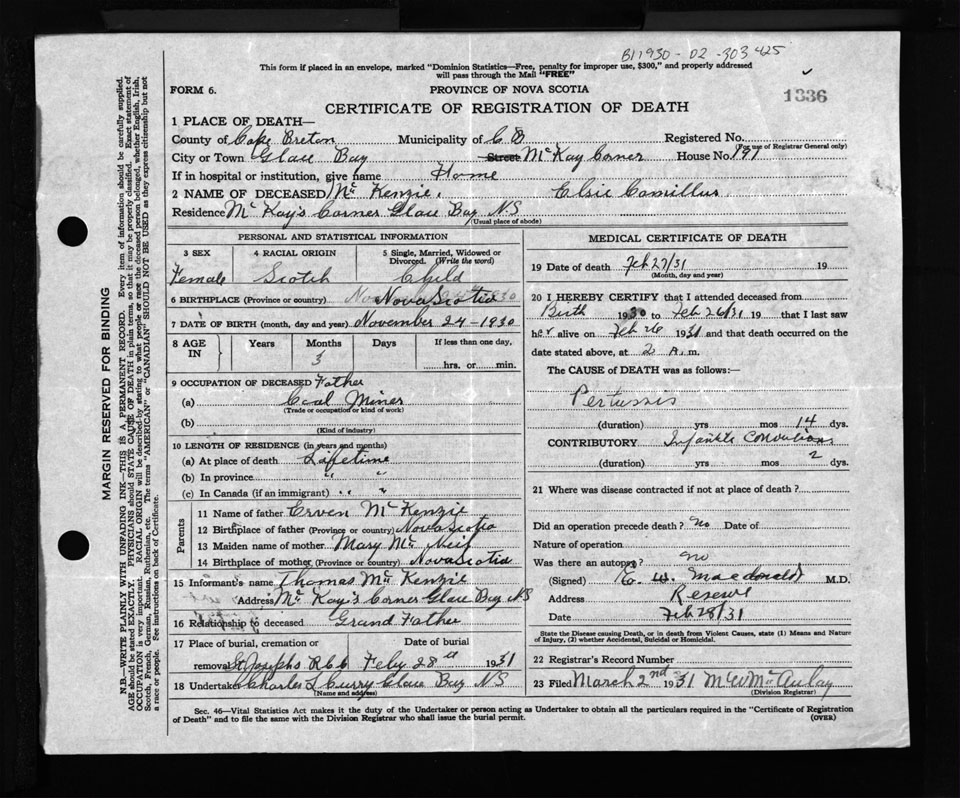 B11930 - 02 - 303425
This form if placed in an envelope, marked "Dominion Statistics—Free, penalty for improper use, $300," and properly addressed
will pass through the Mail "FREE"
FORM 6. PROVINCE OF NOVA SCOTIA 1336
CERTIFICATE OF REGISTRATION OF DEATH
1 PLACE OF DEATH—
County of Cape Breton Municipality of C B Registered No.
(For use of Registrar General only)
City or Town Glace Bay Street McKay Corner House No 191
If in hospital or institution, give name Home
2 NAME OF DECEASED Mc Kenzie, Elsie Camillus
Residence Mc Kay's Corner Glace Bay N.S
(Usual place of abode)
PERSONAL AND STATISTICAL INFORMATION
3 SEX 4 RACIAL ORIGIN 5 Single, Married, Widowed or Divorced. (Write the word)
Female Scotch Child
6 BIRTHPLACE (Province or country) Nova Scotia
7 DATE OF BIRTH (month, day and year) November 24-1930
8 AGE IN Years Months Days If less than one day,
3 hrs. or min.
9 OCCUPATION OF DECEASED Father
(a) Coal Miner
(Trade or occupation or kind of work)
(b)
(Kind of industry)
10 LENGTH OF RESIDENCE (in years and months)
(a) At place of death Lifetime
(b) In province " "
(c) In Canada (if an immigrant) " "
Parents
11 Name of father Erven McKenzie
12 Birthplace of father (Province or country) Nova Scotia
13 Maiden name of mother Mary Mc Neil
14 Birthplace of mother (Province or country) Nova Scotia
15 Informant's name Thomas Mc Kenzie
Address Mc Kay's Corner Glace Bay NS
16 Relationship to deceased Grand Father
17 Place of burial, cremation or Date of burial
removal St Josephs R C C Feby 28 1931
18 Undertaker Charles L Curry Glace Bay N S
(Name and address)
MEDICAL CERTIFICATE OF DEATH
19 Date of death Feb 27/31 19
(Month, day and year)
20 I HEREBY CERTIFY that I attended deceased from
Birth 1930 to Feb 26/31 19 that I last saw
her alive on Feb 26 1931 and that death occurred on the
date stated above, at 2 A.m.
The CAUSE of DEATH was as follows:—
Pertussis
(duration) yrs mos 14 dys.
CONTRIBUTORY Infantile Convulsions
(duration) yrs mos 2 dys.
21 Where was disease contracted if not at place of death?
Did an operation precede death? no Date of
Nature of operation
Was there an autopsy? no
(Signed) E. W. Macdonald M.D.
Address Reserve
Date Feb 28/31
State the Disease causing Death, or in death from Violent Causes, state (1) Means and Nature
of Injury, (2) whether Accidental, Suicidal or Homicidal.
22 Registrar's Record Number
23 Filed March 2nd 1931 M W McAulay
(Division Registrar)
Sec. 46—Vital Statistics Act makes it the duty of the Undertaker or person acting as Undertaker to obtain all the particulars required in the "Certificate of Registration
of Death" and to file the same with the Division Registrar who shall issue the burial permit. (OVER)
MARGIN RESERVED FOR BINDING
N.B.—WRITE PLAINLY WITH UNFADING INK—THIS IS A PERMANENT RECORD. Every item of information should be carefully supplied.
AGE should be stated EXACTLY. PHYSICIANS should STATE CAUSE OF DEATH in plain terms, so that it may be properly classified. Exact statement of
OCCUPATION is very important. RACIAL ORIGIN will be described by stating to what people or race the deceased person belonged, whether English, Irish,
Scotch, French, German, Russian, Ruthenian, etc. The terms "AMERICAN" or "CANADIAN" SHOULD NOT BE USED as they express citizenship but not
a race or people. See instructions on back of Certificate.